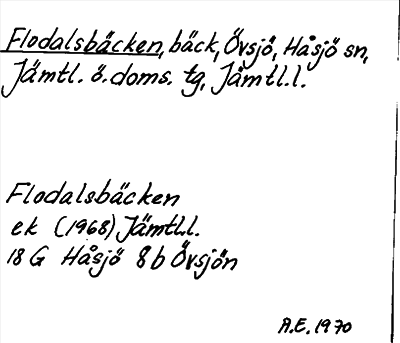 Flodalsbäcken, bäck, Övsjö, Håsjö sn,
Jämtl. ö. doms. tg, Jämtl.l.
Flodalsbäcken
ek (1968) Jämtl.l.
18 G Håsjö 8 b Övsjön
A.E. 1970